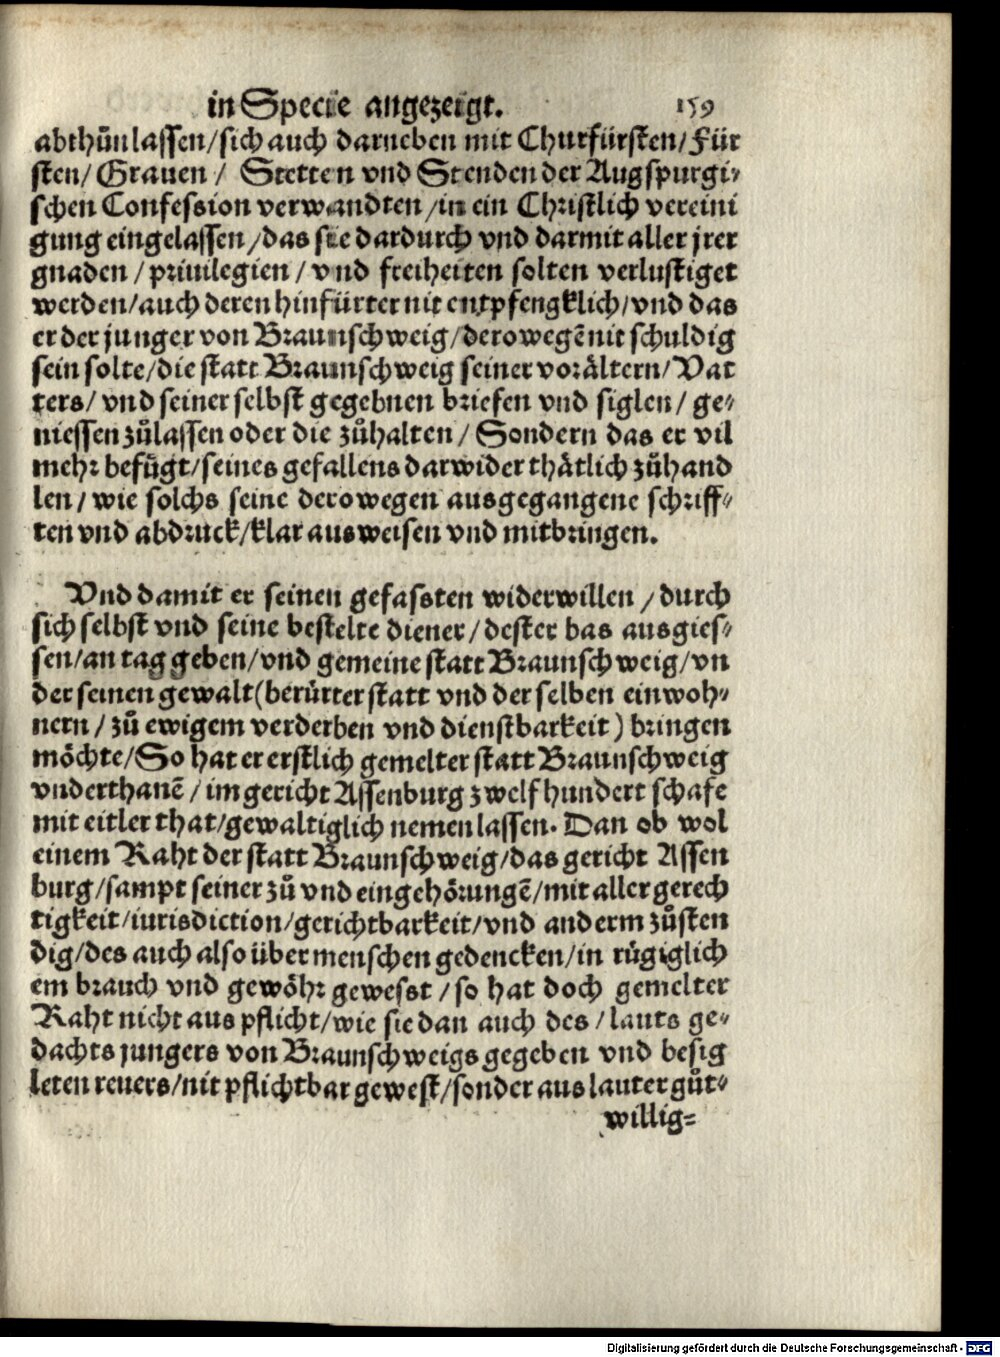 in Specie angezeigt. 159
abthůn lassen/sich auch darneben mit Churfürsten/Für
sten/ Grauen / Stetten vnd Stenden der Augspurgi-
schen Confession verwandten/in ein Christlich vereini
gung eingelassen/das sie dardurch vnd darmit aller jrer
gnaden/priuilegien/vnd freiheiten solten verlustiget
werden/auch deren hinfürter nit entpfengklich/vnd das
er der junger von Braunschweig/derowegē nit schuldig
sein solte/die statt Braunschweig seiner vorältern/Vat
ters/ vnd seiner selbst gegebnen briefen vnd siglen/ ge-
niessen zůlassen oder die zůhalten/ Sondern das er vil
mehr befůgt/seines gefallens darwider thätlich zůhand
len/ wie solchs seine derowegen ausgegangene schriff-
ten vnd abdruck/klar ausweisen vnd mitbringen.
Vnd damit er seinen gefassten widerwillen / durch
sich selbst vnd seine bestelte diener/dester bas ausgies-
sen/an tag geben/vnd gemeine statt Braunschweig/vn
der seinen gewalt(berürter statt vnd derselben einwoh-
nern/ zů ewigem verderben vnd dienstbarkeit) bringen
möchte/So hat er erstlich gemelter statt Braunschweig
vnderthanē/ im gericht Assenburg zwelfhundert schafe
mit eitler that/gewaltiglich nemen lassen. Dan ob wol
einem Raht der statt Braunschweig/das gericht Assen
burg/sampt seiner zů vnd eingehörungē/mit aller gerech
tigkeit/iurisdiction/gerichtbarkeit/vnd anderm zůsten
dig/des auch also über menschen gedencken/in růgiglich
em brauch vnd gewöhr gewesst/so hat doch gemelter
Raht nicht aus pflicht/wie sie dan auch des/lauts ge-
dachts jungers von Braunschweigs gegeben vnd besig
leten reuers/nit pflichtbar gewest/sonder aus lauter gůt-
willig=
Digitalisierung gefördert durch die Deutsche Forschungsgemeinschaft - DFG